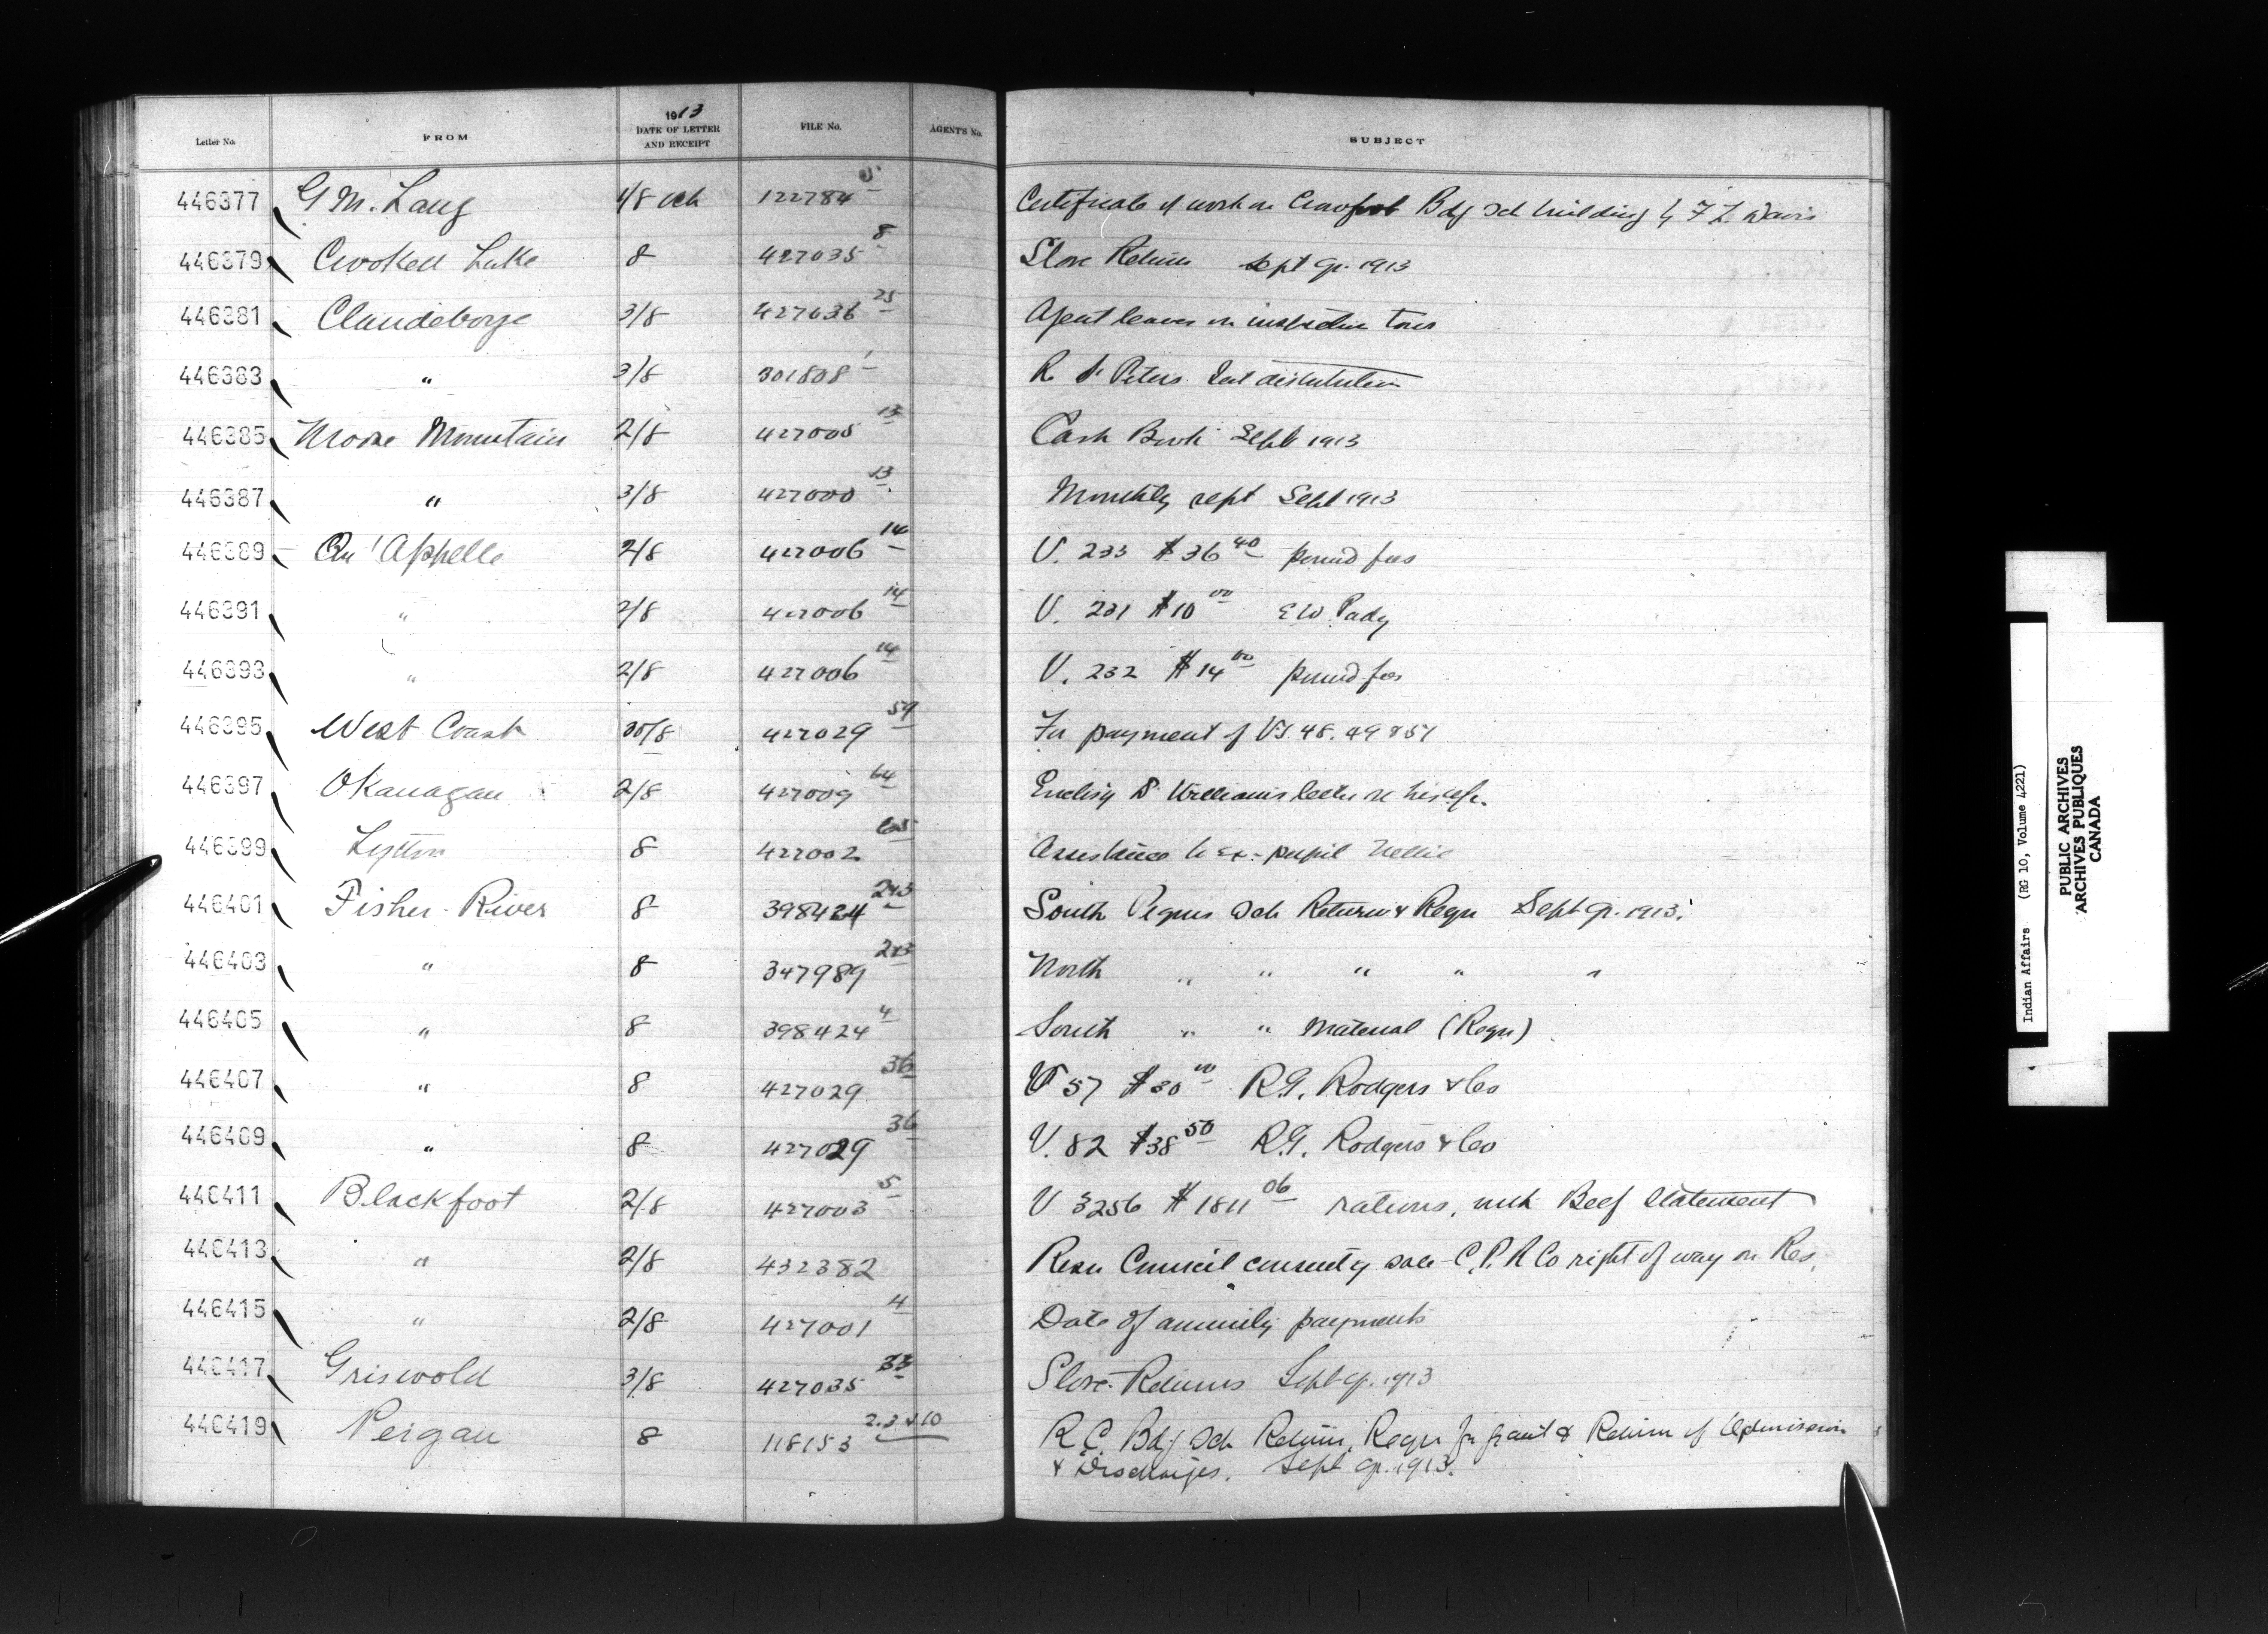 1913
Letter No. FROM DATE OF LETTER AND RECEIPT FILE No. AGENT'S No. SUBJECT
446377 G M. Lang 4/8 Oct 122784 5 Certificate of work on Crowfoot Bdg Sch building by F L Davis
446379 Crooked Lake 8 427035 8 Store Return Sept qr. 1913
446381 Clandeboye 3/8 427036 25 Agent leaves on inspection tour
446383 " 3/8 301808 1 R St Peters Int distribution
446385 Moose Mountain 2/8 427005 13 Cash Book Sept 1913
446387 " 3/8 427000 13 Monthly rept Sept 1913
446389 Qu'Appelle 2/8 427006 14 V. 233 $36 40 pound fees
446391 " 2/8 427006 14 V. 231 $10 00 E W Pady
446393 " 2/8 427006 14 V. 232 $14 00 pound fees
446395 West Coast 30/8 427029 59 For payment of Vs. 48. 49 & 51
446397 Okanagan 2/8 427009 64 Enclosg Dr Williams letter re his
446399 Lytton 8 427002 Assistance to ex-pupil Nellie
446401 Fisher River 8 398424 2&3 South Peguis Sch Return & Requ Sept qr. 1913.
446403 " 8 347989 2&3 North " " " " "
446405 " 8 398424 4 South " " Material (Requ)
446407 " 8 427029 36 V 57 $30 00 R.G. Rodgers & Co
446409 " 8 427029 36 V. 82 $38 50 R.G. Rodgers & Co
446411 Blackfoot 2/8 427003 5 V 3256 $1811 06 rations, with Beef Statement
446413 " 2/8 432382 Resn Council consentg sale C.P.R Co right of way on Res.
446415 " 2/8 427001 4 Date of annuity payments
446417 Griswold 3/8 427035 33 Store Returns Sept qr. 1913
446419 Peigan 8 118153 2.3 & 10 R.C. Bdg Sch Return, Requ for grant & Return of Admission
& Discharges. Sept qr. 1913.
Indian Affairs (RG 10, Volume 4221)
PUBLIC ARCHIVES
ARCHIVES PUBLIQUES
CANADA